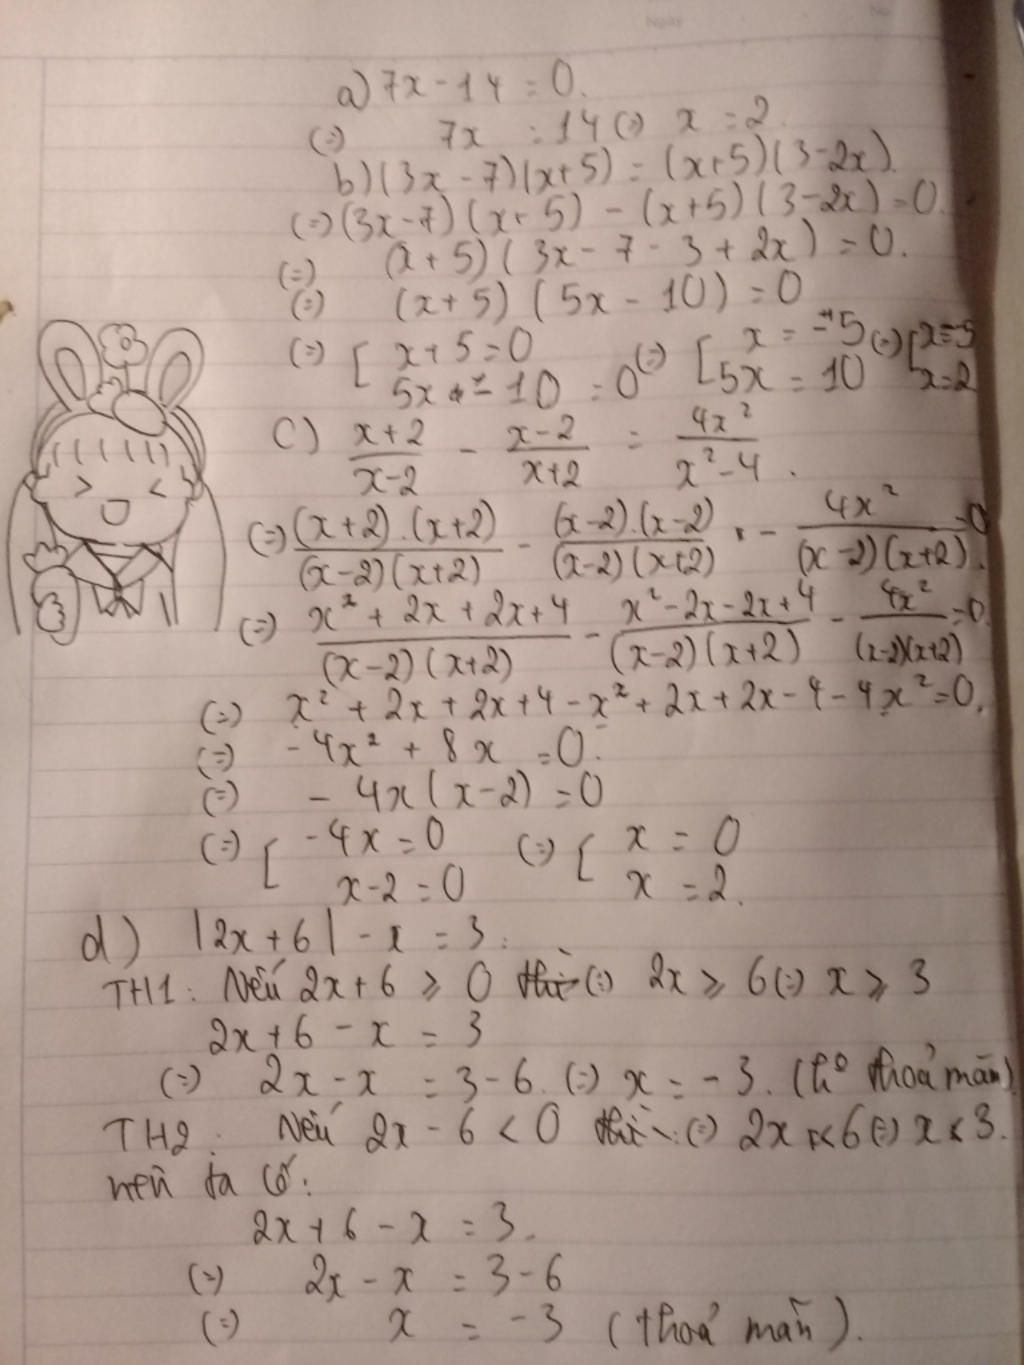 Ngày No
a) 7x - 14 = 0.
(=) 7x = 14 (=) x = 2
b) (3x - 7)(x+5) = (x+5)(3-2x).
(=) (3x-7)(x+5) - (x+5)(3-2x) = 0.
(=) (x+5)(3x - 7 - 3 + 2x) = 0.
(=) (x+5) (5x - 10) = 0
(=) [ x + 5 = 0 (=) [ x = -5 (=) [ x = -5
5x - 10 = 0 5x = 10 x = 2
c) (x+2)/(x-2) - (x-2)/(x+2) = 4x²/(x²-4).
(=) (x+2).(x+2)/(x-2)(x+2) - (x-2).(x-2)/(x-2)(x+2) - 4x²/(x-2)(x+2) = 0.
(=) (x² + 2x + 2x + 4)/(x-2)(x+2) - (x² - 2x - 2x + 4)/(x-2)(x+2) - 4x²/(x-2)(x+2) = 0.
(=) x² + 2x + 2x + 4 - x² + 2x + 2x - 4 - 4x² = 0.
(=) - 4x² + 8x = 0.
(=) - 4x(x-2) = 0
(=) [ -4x = 0 (=) [ x = 0
x-2 = 0 x = 2.
d) |2x+6| - x = 3.
TH1: Nếu 2x+6 ≥ 0 (=) 2x ≥ 6 (=) x ≥ 3
2x+6 - x = 3
(=) 2x - x = 3-6. (=) x = -3. (ko thoả mãn)
TH2: Nếu 2x - 6 < 0 (=) 2x < 6 (=) x < 3.
nên ta có:
2x+6 - x = 3.
(=) 2x - x = 3-6
(=) x = -3 (thoả mãn).